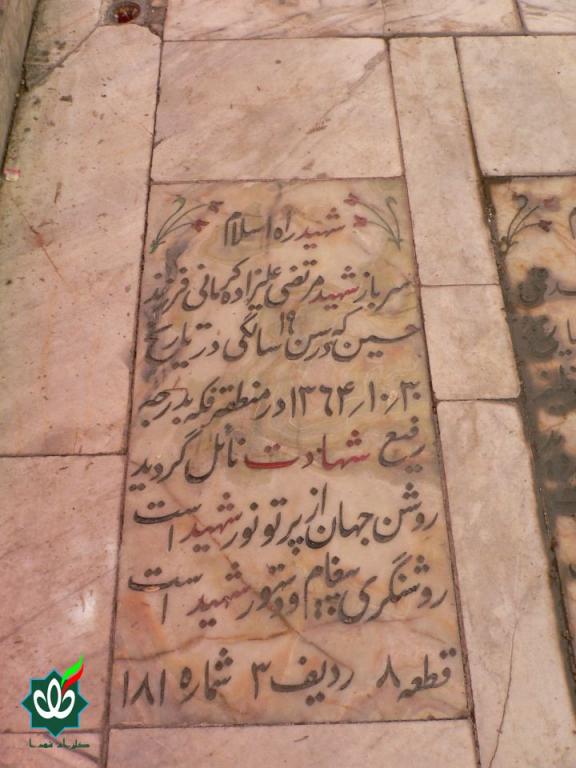 شهید راه اسلام
سرباز شهید مرتضی علیزاده کرمانی فرزند
حسین که در سن ۱۹ سالگی در تاریخ
۱۳۶۴/۱۰/۳۰ در منطقه فکه بدرجه
رفیع شهادت نائل گردید
روشن جهان از پرتو نور شهید است
روشنگری پیغام و دستور شهید است
قطعه ۸ ردیف ۳ شماره ۱۸۱
گلزار شهدا